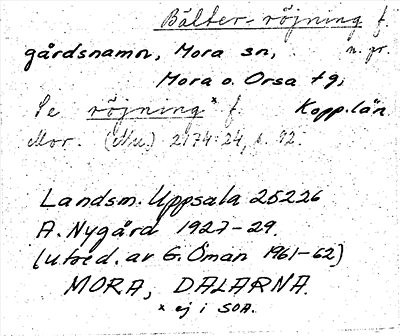 Bälter-röjning f.
gårdsnamn, Mora sn, n. pr.
Mora o. Orsa tg,
Se röjning* f. Kopp.län
Mor. (Mu.) 2174:24, s. 92.
Landsm. Uppsala 25226
A. Nygård 1927-29.
(utred. av G. Öman 1961-62)
MORA, DALARNA.
* ej i SOA.